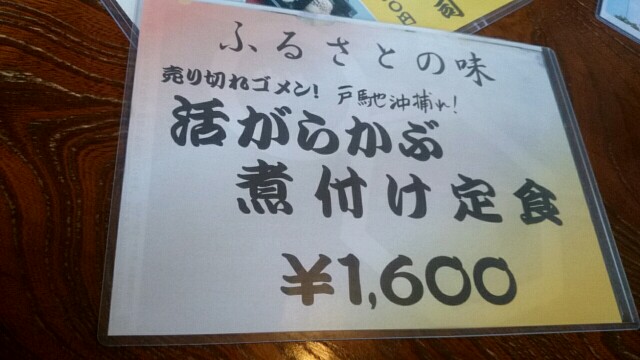 ふるさとの味
売り切れゴメン! 戸馳沖捕れ!
活がらかぶ
煮付け定食
¥1,600